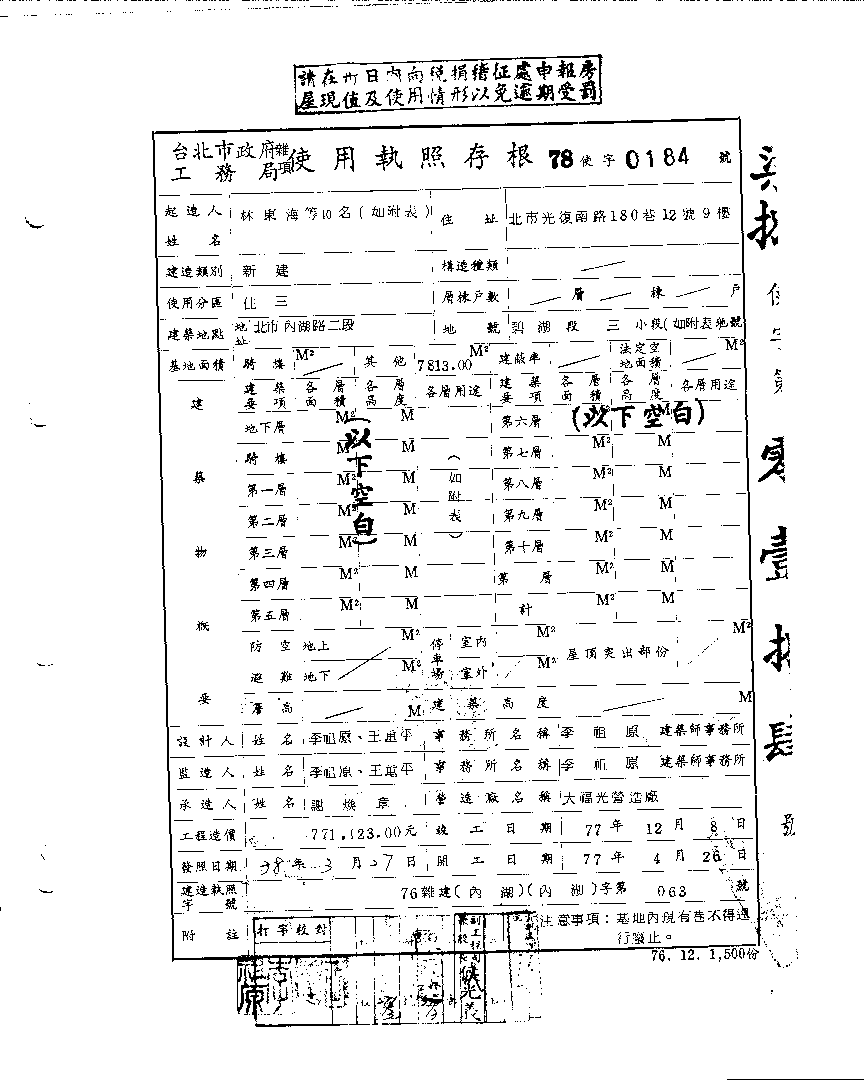 請在卅日內向稅捐稽征處申報房
屋現值及使用情形以免逾期受罰
台北市政府工務局 雜項 使用執照存根 78 使字 0184 號
起造人姓名 林東海等10名(如附表) 住址 北市光復南路180巷12號9樓
建造類別 新建 構造種類
使用分區 住三 層棟戶數 層 棟 戶
建築地點 地址 北市內湖路二段 地號 碧湖段 三 小段(如附表地號
基地面積 騎樓 M² 其他 7813.00 M² 建蔽率 法定空地面積 M²
建築物概要 建築要項 各層面積 各層高度 各層用途 建築要項 各層面積 各層高度 各層用途
地下層 M² M 第六層 (以下空白)
騎樓 M² M 第七層 M² M
第一層 M² M 第八層 M² M
第二層 M² M 第九層 M² M
第三層 M² M 第十層 M² M
第四層 M² M 第 層 M² M
第五層 M² M 計 M² M
(以下空白)
(如附表)
防空避難 地上 M² 停車場 室內 M² 屋頂突出部份 M²
地下 M² 室外 M²
層高 M 建築高度 M
設計人 姓名 李祖原、王重平 事務所名稱 李祖原 建築師事務所
監造人 姓名 李祖原、王重平 事務所名稱 李祖原 建築師事務所
承造人 姓名 謝煥章 營造廠名稱 大福光營造廠
工程造價 771,123.00元 竣工日期 77年 12月 8日
發照日期 78年 3月 27日 開工日期 77年 4月 26日
建造執照字號 76雜建(內湖)(內湖)字第 063 號
附註 打字校對 注意事項:基地內現有巷不得逕
行廢止。
76. 12. 1,500份
使字第
零壹捌肆
號